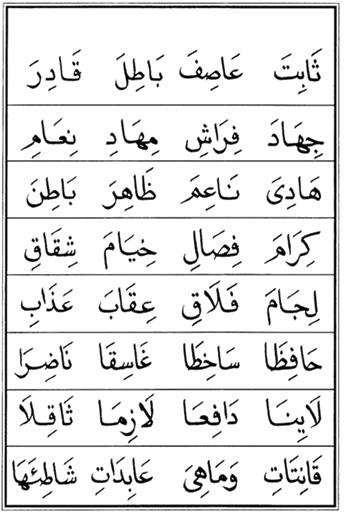 ثَابِتَ عَاصِفَ بَاطِلَ قَادِرَ
جِهَادَ فِرَاشِ مِهَادِ نِعَامِ
هَادِیَ نَاعِمَ ظَاهِرَ بَاطِنَ
كِرَامَ فِصَالِ خِيَامَ شِقَاقِ
لِجَامَ فَلَاقِ عِقَابَ عَذَابِ
حَافِظَا سَاخِطَا غَاسِقَا نَاضِرَا
لَايِنَا دَافِعَا لَازِمَا ثَاقِلَا
قَانِتَاتِ وَمَاهِیَ عَابِدَاتِ